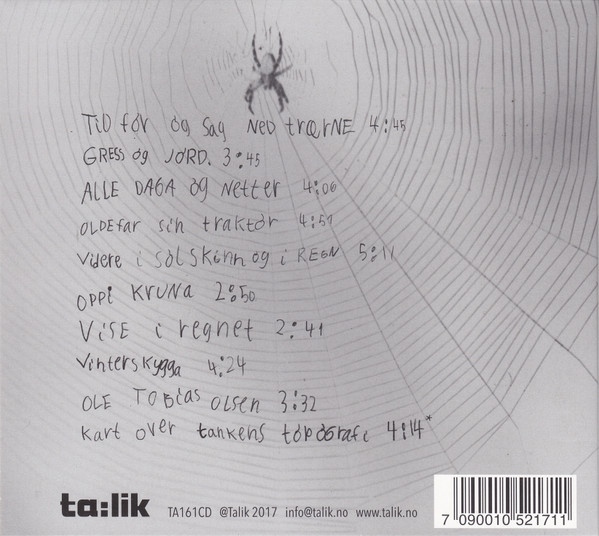 TID før og sag NED trærNE 4:45
GRESS og JORD. 3:45
ALLE DAGA og Netter 4:06
OLDEfar sin traktor 4:51
Videre i solskinn og i REGN 5:11
OPPi KRUNA 2:50
ViSE i regnet 2:41
Vinterskygga 4:24
OLE TOBias OLsen 3:32
Kart over tankens topografi 4:14*
ta:lik TA161CD @Talik 2017 info@talik.no www.talik.no
7 090010 521711